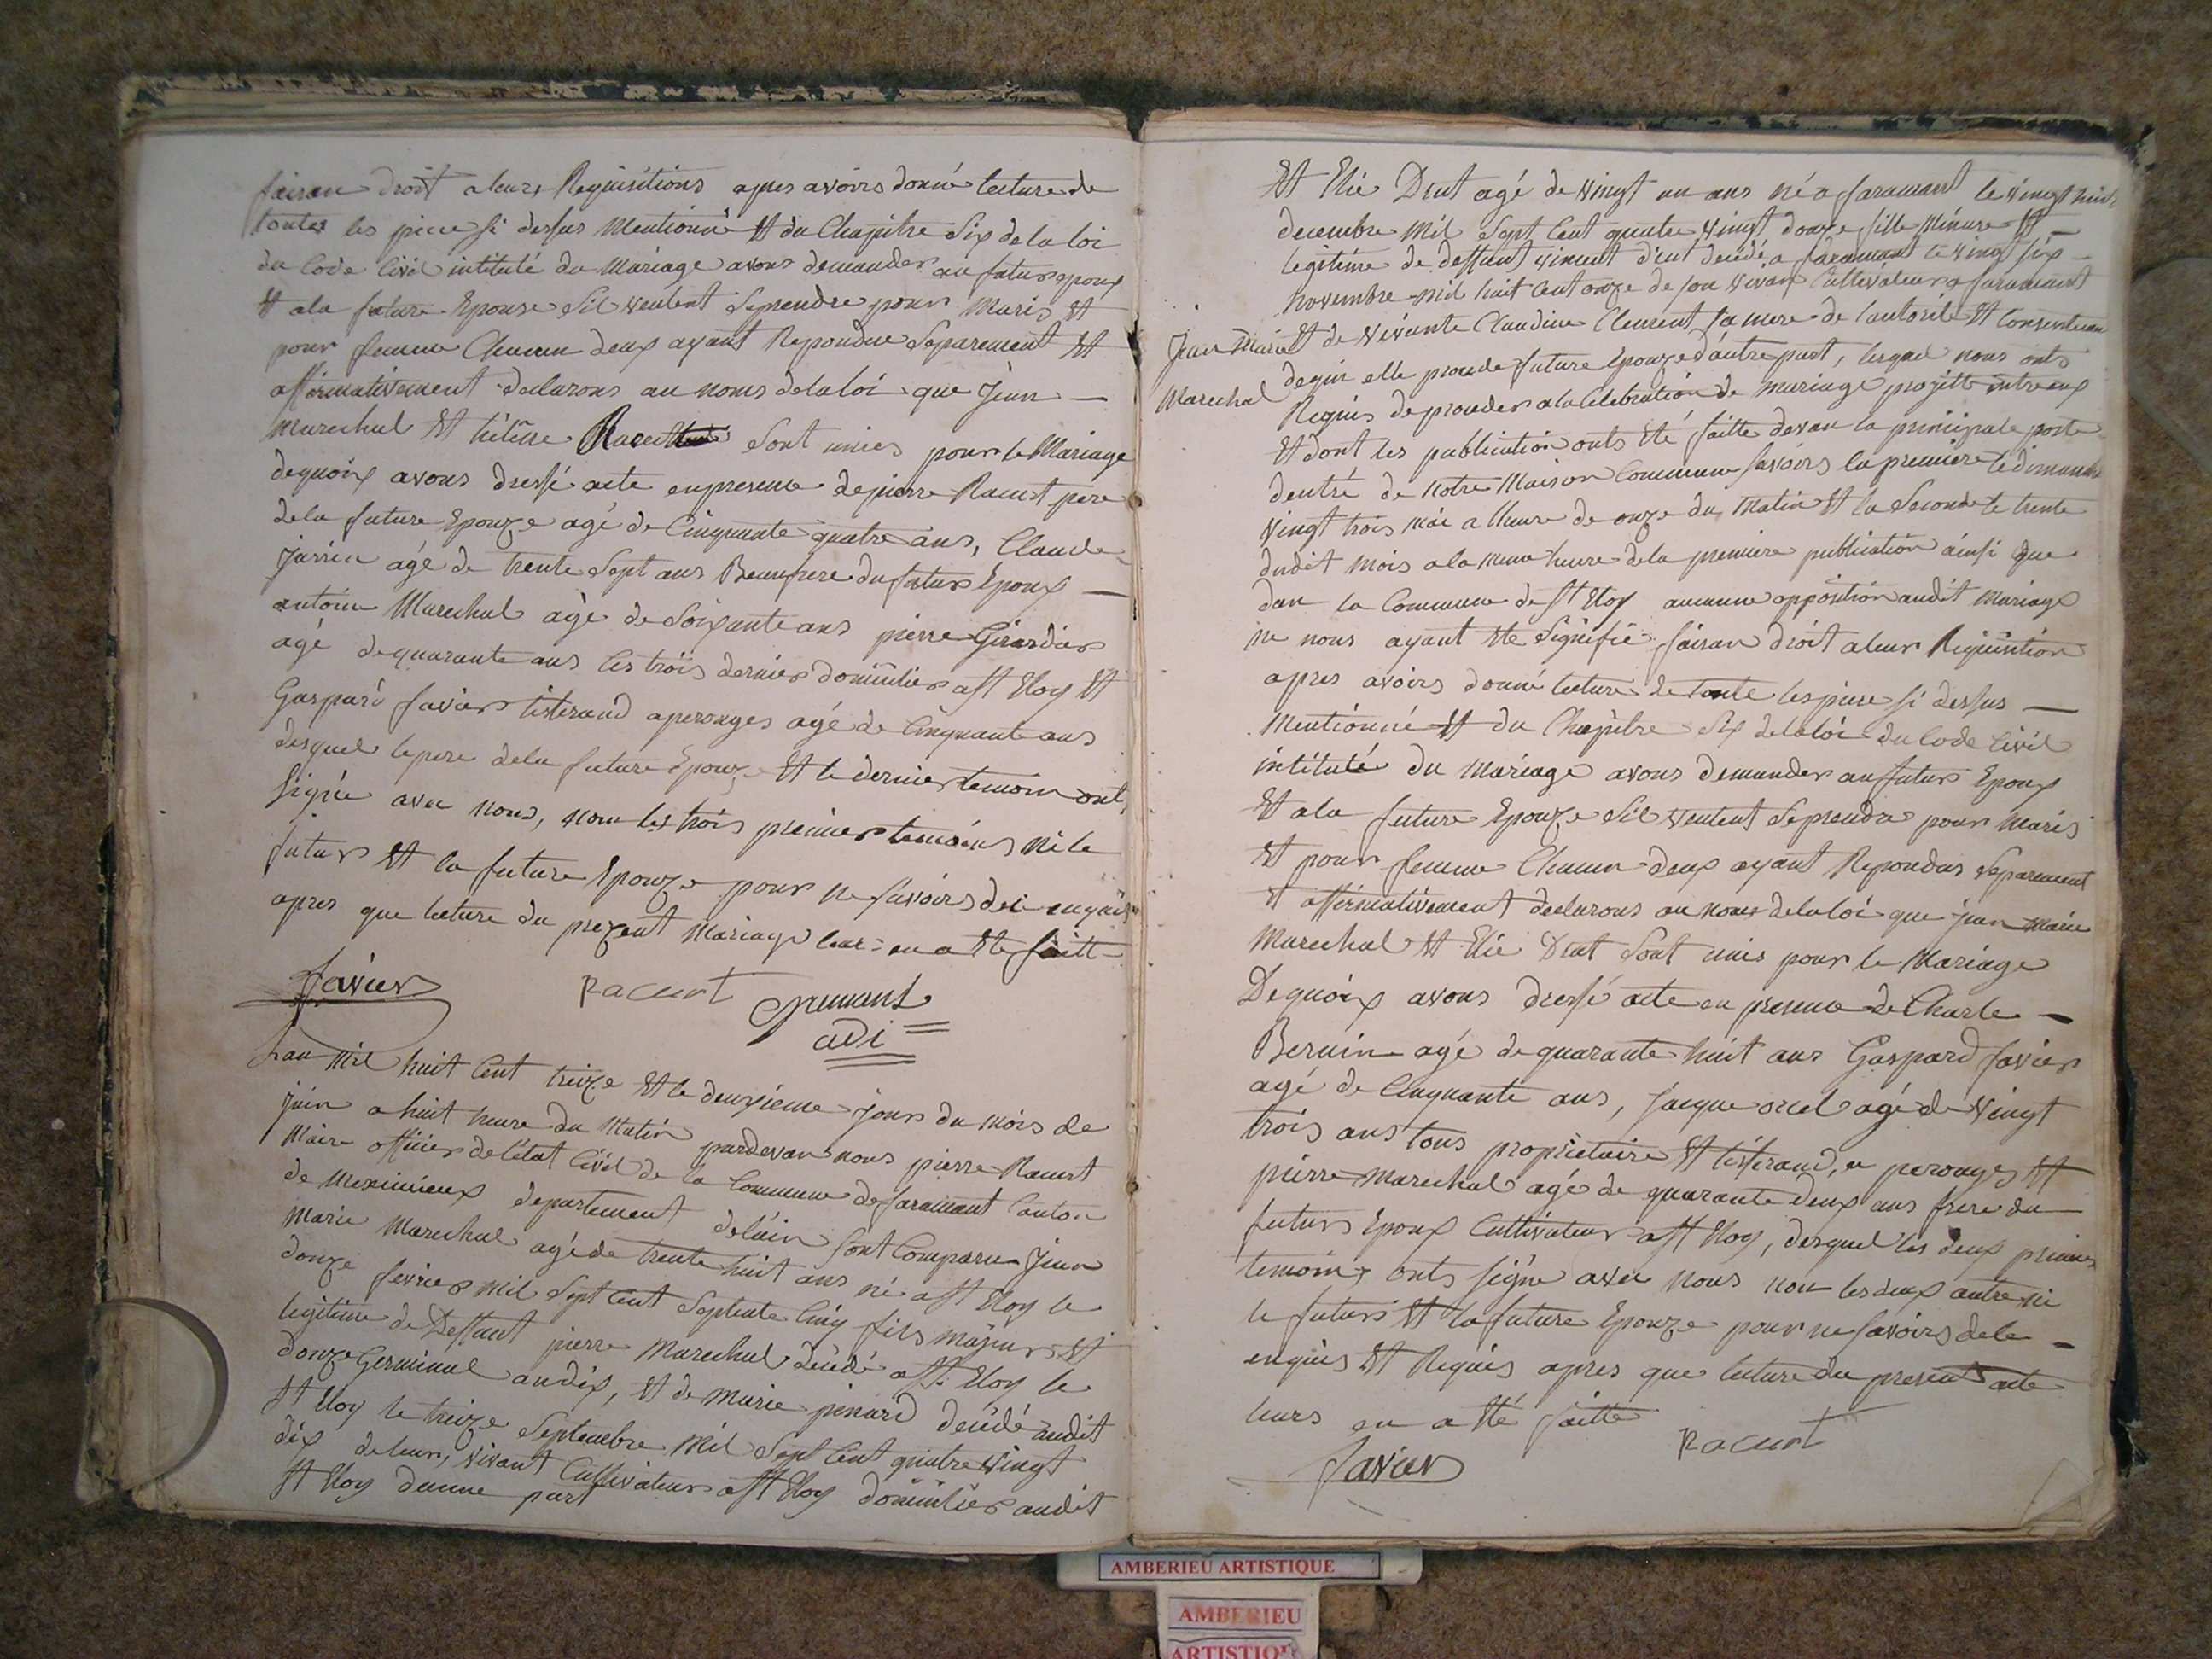 faisan droit a leurs Requisitions apres avoirs donné lecture de
toutes les piece si dessus Mentionné Et du Chapitre Six de la loi
du Code Civil intitulé du Mariage avons demander au futur epoux
Et a la future Epouse Sil veulent Seprendre pour Maris Et
pour femme Chacun deux ayant Repondue Separement Et
affirmativement declarons au noms de la loi que Jean —
Marechal Et héléne Racurt Sont unies pour le Mariage
dequoix avons dressé acte en presence de pierre Racurt pere
de la future Epouze agé de Cinquante quatre ans, Claude
agé de trente Sept ans Beaufrere du futur Epoux —
antoine Marechal agé de Soixante ans pierre Girardier
agé de quarante ans les trois dernier domicilier a St Eloy Et
Gaspard favier tisserand a perouges agé de Cinquante ans
desquel le pere de la future Epouze Et le dernier temoin ont
Signée avec nous, non les trois premier temoins ni le
futur Et la future Epouze pour ne savoirs de ce enquis
apres que lecture du prezent Mariage leur en a Eté faitte
favier Racurt
adi
Lan Mil huit Cent treize Et le deuxiéme jour du mois de
juin a huit heure du Matin pardevan nous pierre Racurt
Maire officier de l'état Civil de la Commune de faramant Canton
de Meximieux departement de l'ain sont Comparu Jean
Marie Marechal agé de trente huit ans né a St Eloy le
douze fevrier Mil Sept Cent Septente Cinq fils majeur Et
legitime de Deffunt pierre Marechal décédé a St Eloy le
douze Germinal an dix, Et de Marie pinard décédé audit
St Eloy le treize Septembre Mil Sept Cent quatre vingt
dix de leur vivant Cultivateur a St Eloy domicilier audit
St Eloy daune part
Et Elie Drut agé de vingt un ans né a faramant le vingt huit
decembre Mil Sept Cent quatre vingt douze fille Minure Et —
legitime de deffunt vincent drut décédé a faramant le vingt six —
novembre mil huit Cent onze de son vivan Cultivateur a faramant
Jean Marie Et de vivante Claudine Clement sa mere de l'autorité Et Consentement
Marechal dequi elle procede future Epouze d'autre part, lesquel nous onts
Requis de proceder a la Celebration de mariage projetté entreeux
Et dont les publication onts Eté faitte devan la principale porte
dentré de notre Maison Commune savoirs la premiere le dimanche
vingt trois Mai a lheure de onze du Matin Et la Seconde le trente
dudit mois a la meme heure de la premiere publication ainsi que
dan la Commune de St Eloy aucune opposition audit Mariage
ne nous ayant Eté Signifié faisan droit a leur Réquisition
apres avoirs donné lecture de toute les piece si dessus —
Mentionné Et du Chapitre Six de la loi du Code Civil
intitulé du Mariage avons demander au futur Epoux
Et a la future Epouze Sil veulent Seprendre pour Maris
Et pour femme Chacun deux ayant Repondus Separement
Et affirmativement declarons au noms de la loi que jean Marie
Marechal Et Elie Drut Sont unis pour le Mariage
Dequoix avons dressé acte en presence de Charle —
Bernin agé de quarante huit ans Gaspard favier
agé de Cinquante ans, jacque orcel agé de vingt
trois ans tous proprietaire Et tisserand, a perouges Et
pierre Marechal agé de quarante deux ans frere du
futur Epoux Cultivateur a St Eloy, desquel les deux premier
temoins onts signé avec nous non les deux autre ni
le futur Et la future Epouze pour ne savoirs de le —
enquis Et Requis apres que lecture du present acte
leurs en a Eté faitte
favier Racurt
AMBERIEU ARTISTIQUE
AMBERIEU
ARTISTIQUE